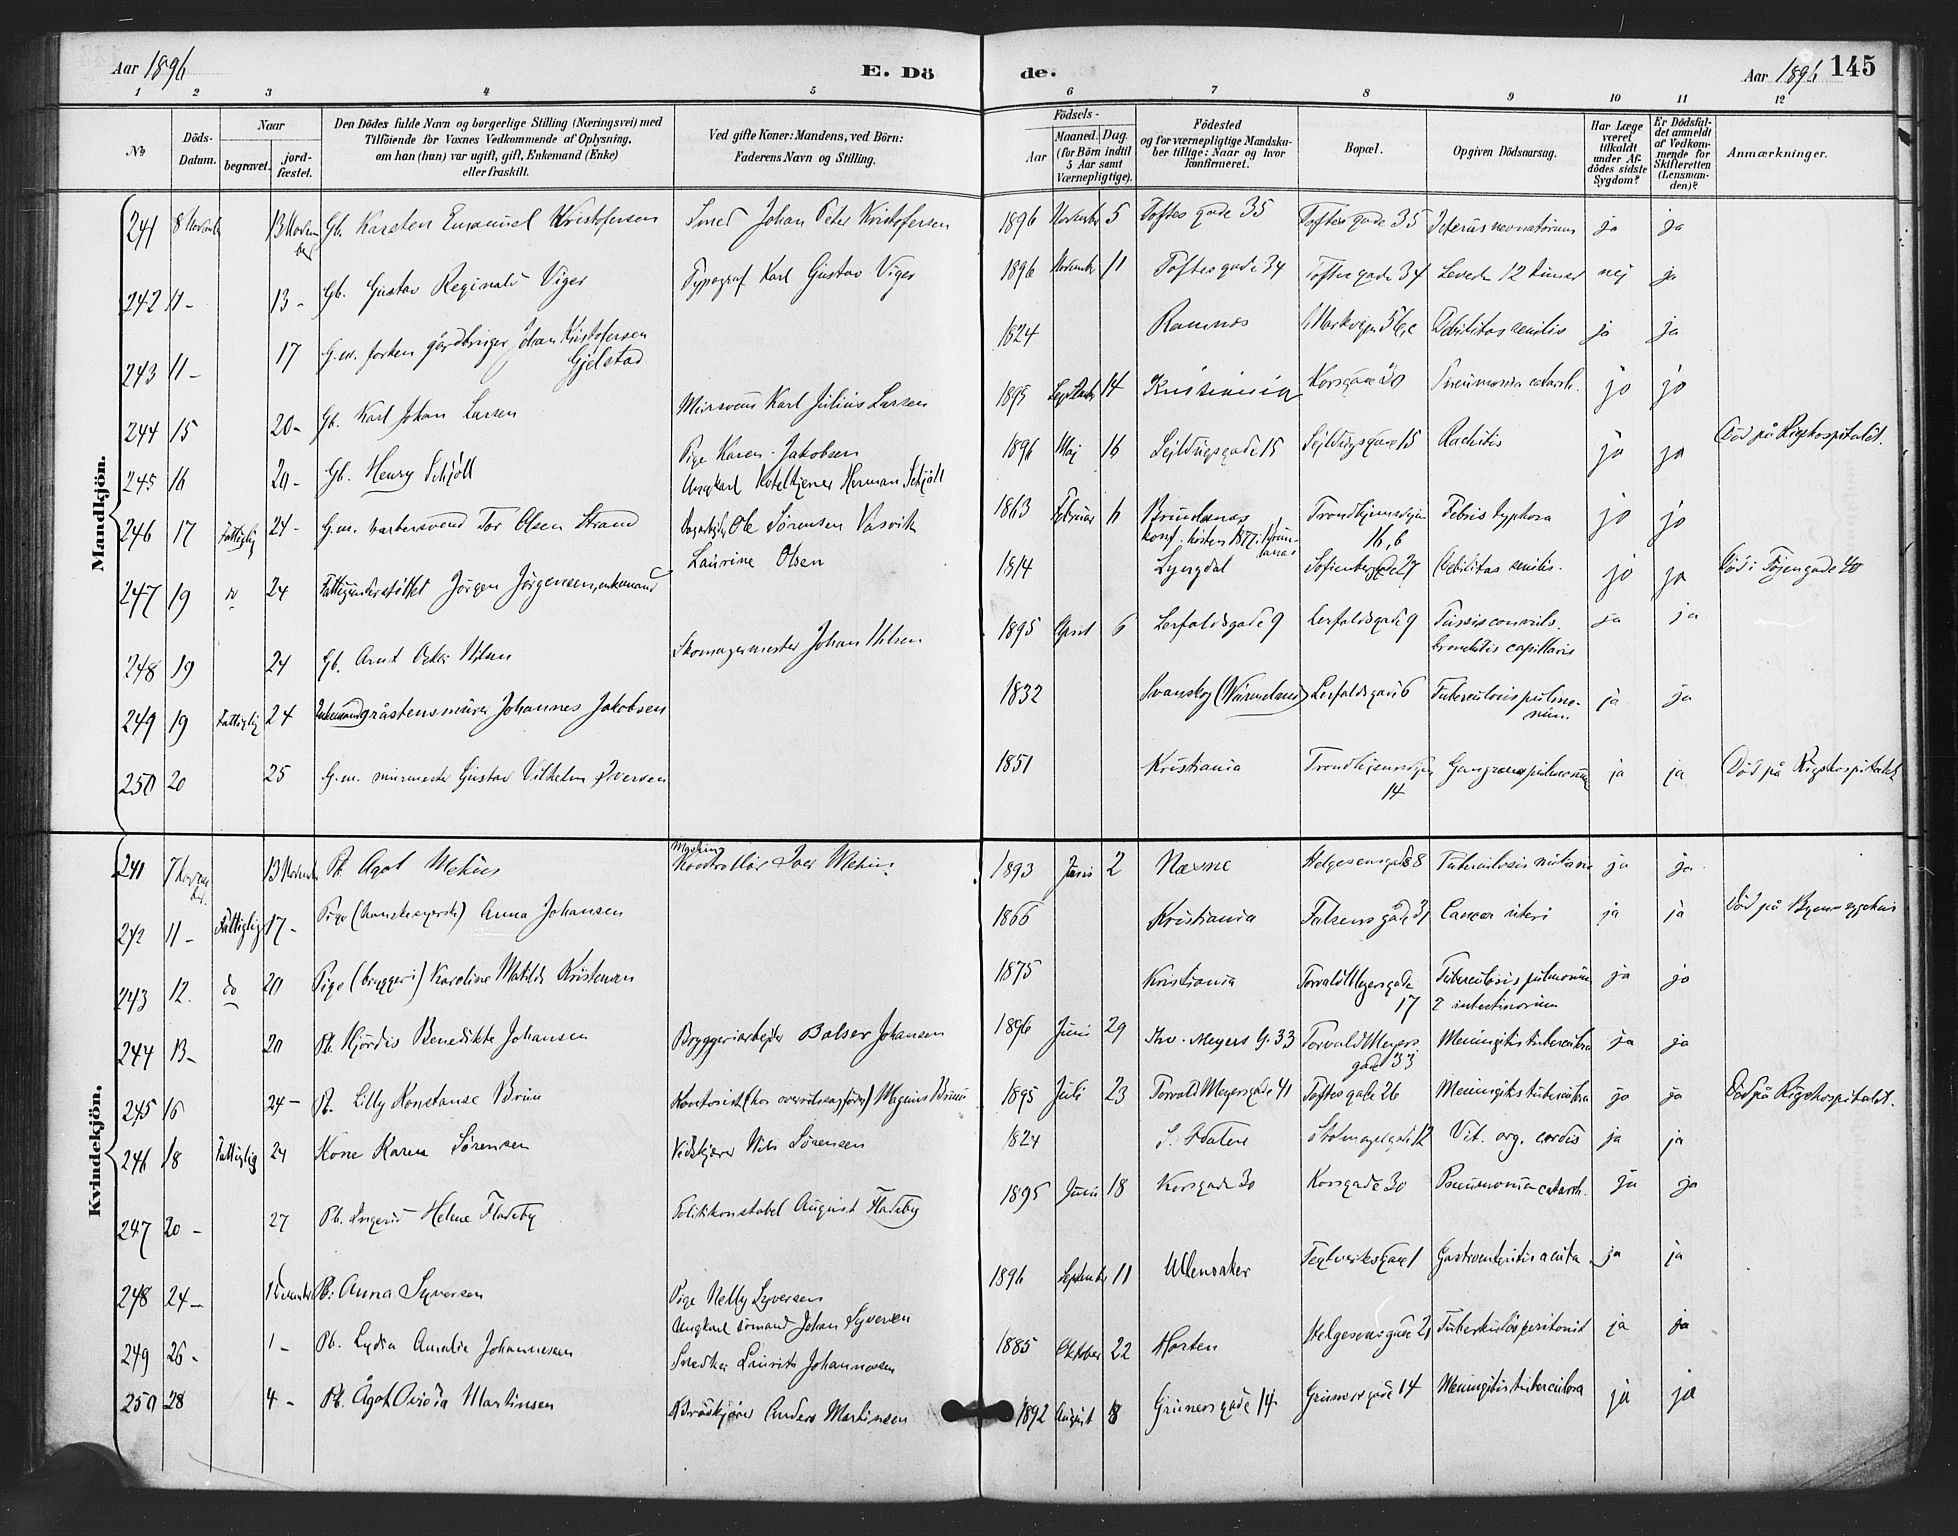 Aar 1896 E. Dö de. Aar 1896 145
1 2 3 4 5 6 7 8 9 10 11 12
No
Döds-Datum.
Naar
begravet. jord-fæstet.
Den Dödes fulde Navn og borgerlige Stilling (Næringsvei) med
Tilföiende for Voxnes Vedkommende af Oplysning,
om han (hun) var ugift, gift, Enkemand (Enke)
eller fraskilt.
Ved gifte Koner: Mandens, ved Börn:
Faderens Navn og Stilling.
Födsels-
Aar Maaned. Dag.
(for Börn indtil
5 Aar samt
Værnepligtige).
Födested
og for værnepligtige Mandska-
ber tillige: Naar og hvor
konfirmeret.
Bopæl.
Opgiven Dödsaarsag.
Har Læge
været
tilkaldt
under Af-
dödes sidste
Sygdom?
Er Dödsfal-
det anmeldt
af Vedkom-
mende for
Skifteretten
(Lensman-
den)?
Anmærkninger.
Mandkjön.
241 8 November 13 November Gb. Karsten Emanuel Kristofersen Smed Johan Peter Kristofersen 1896 November 5 Toftes gade 35 Toftes gade 35 Icterus neonatorum ja ja
242 11 - 13 - Gb. Gustav Reginald Viger Typograf Karl Gustav Viger 1896 November 11 Toftes gade 34 Toftes gade 34 Levede 12 timer nej ja
243 11 - 17 G.m. forhen gårdbruger Johan Kristofersen Gjelstad 1824 Ramnes Markvejen 56,c Debilitas senilis ja ja
244 15 20 - Gb. Karl Johan Larsen Mursvend Karl Julius Larsen 1895 September 14 Kristiania Korsgade 30 Pneumonia catarrh. ja ja
245 16 20 - Gb. Henry Schjöll Pige Karen Jakobsen
Ungkarl Hoteltjener Herman Schjöll 1896 Maj 16 Sejldugsgade 15 Sejldugsgade 15 Rachitis ja ja Död på Rigshospitalet.
246 17 Fattiglig 24 - G.m. barbersvend Tor Olsen Strand Ole Sörensen Vasvik
Laurine Olsen 1863 Februar 11 Brunlanes
konf. hösten 1877 i Brunlanes Trondhjemsvejen 16, b Febris typhosa ja ja
247 19 do 24 Fattigunderstöttet Jörgen Jörgensen, enkemand 1814 Lyngdal Sofienberggade 27 Debilitas senilis. ja ja Död i Töjengade 40
248 19 24 Gb. Arnt Oskar Nilsen Skomagermester Johan Nilsen 1895 April 6 Lerfaldsgade 9 Lerfaldsgade 9 Tussis convuls.
bronchitis capillaris ja ja
249 19 Fattiglig 24 Enkemand gråstensmurer Johannes Jakobsen 1832 Svanskog (Värmland) Lerfaldsgade 6 Tuberculosis pulmonum ja ja
250 20 25 G.m. murmester Gustav Vilhelm Iversen 1851 Kristiania Trondhjemsvejen 14 Gangræna pulmonum ja ja Död på Rigshospitalet
Kvindekjön.
241 7 November 13 November Pb. Agot Mehus Maskinkontrollör Iver Mehus 1893 Juni 2 Næsne Helgesensgade 8 Tuberculosis miliaris ja ja
242 11 - Fattiglig 17 - Pige (hanskesyerske) Anna Johansen 1866 Kristiania Falsensgade 31 Cancer uteri ja ja Död på Byens sygehus
243 12. do 20 Pige (bryggeri) Karoline Matilde Kristensen 1875 Kristiania Torvald Meyersgade 17 Tuberculosis pulmonum
& intestinorum ja ja
244 13 - 20 Pb. Hjördis Benedikte Johansen Bryggeriarbejder Balser Johansen 1896 Juni 29 Thv. Meyers G. 33 Torvald Meyers gade 33 Meningitis tuberculosa ja ja
245 16 24 - Pb. Lilly Konstanse Bruu Kontorist (hos overretssagförer) Magnus Bruu 1895 Juli 23 Torvald Meyersgade 41 Toftes gade 26 Meningitis tuberculosa ja ja Död på Rigshospitalet.
246 18 Fattiglig 24 Kone Karen Sörensen Vedskjærer Nils Sörensen 1824 S. Odalen Stolmagergade 12 Vit. org. cordis ja ja
247 20 - 27 Pb. Ingerid Helene Fladeby Politikonstabel August Fladeby 1895 Juni 18 Korsgade 30 Korsgade 30 Pneumonia catarrh. ja ja
248 24 - 1 December Pb. Anna Syversen Pige Nelly Syversen
Ungkarl sömand Johan Syversen 1896 September 11 Ullensaker Teglverksgade 1 Gastroenteritis acuta ja ja
249 26 - 1 - Pb. Lydia Amalie Johannessen Snedker Laurits Johannessen 1885 Oktober 22 Horten Helgesens gade 21 Tuberkulös peritonit ja ja
250 28 4 - Pb. Ågot Ovidia Martinsen Brödkjörer Anders Martinsen 1892 August 8 Grünersgade 14 Grünersgade 14 Meningitis tuberculosa ja ja